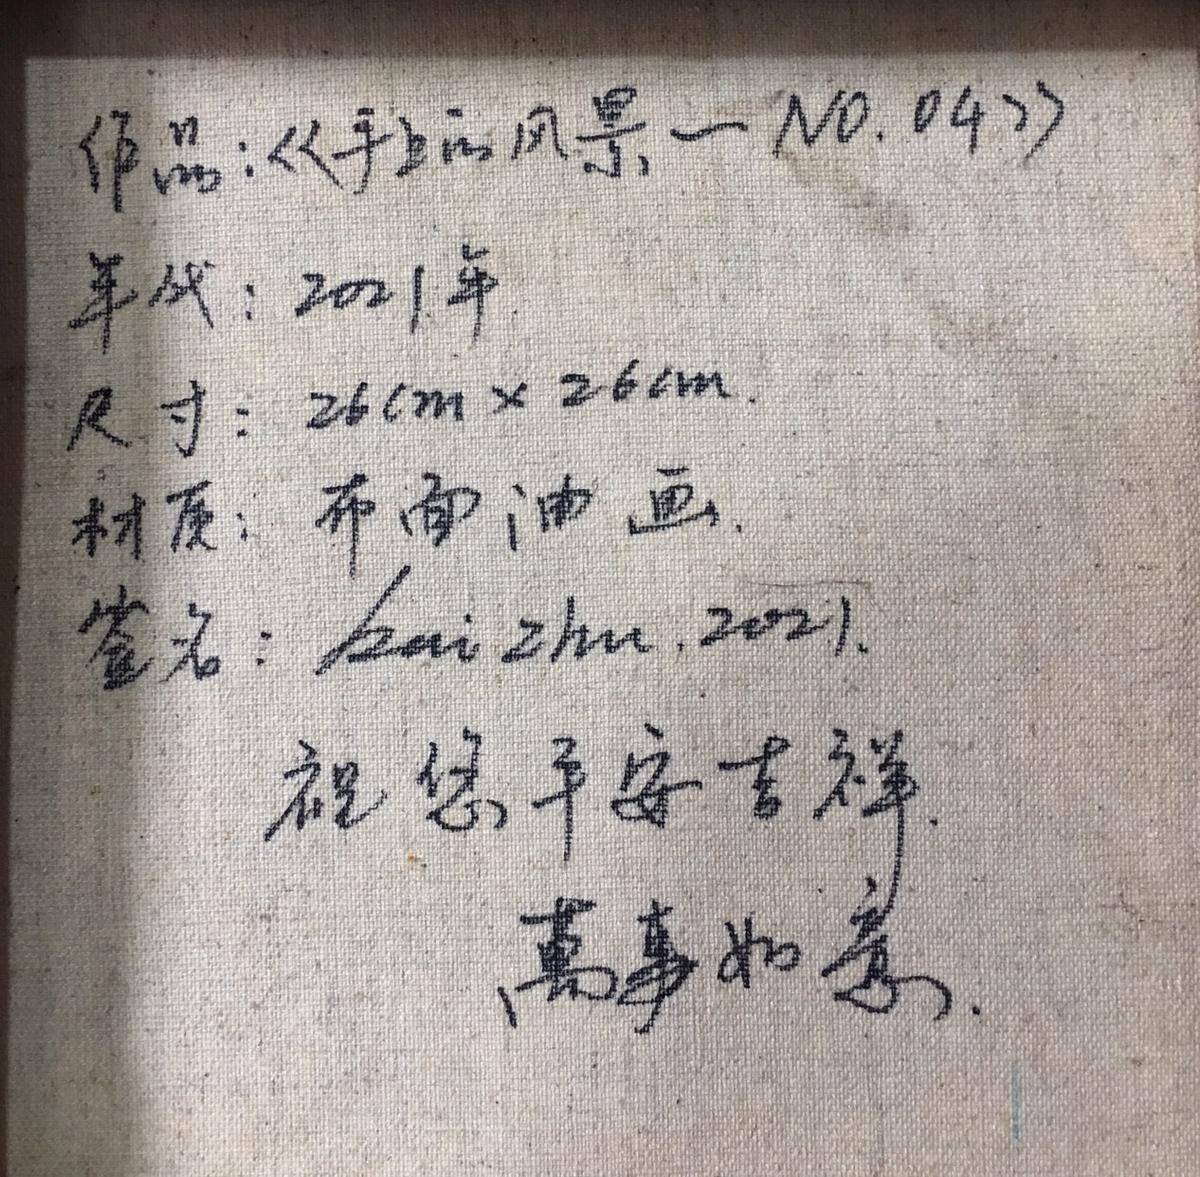 作品:《手上的风景一NO.04》
年代:2021年
尺寸:26cm×26cm.
材质:布面油画.
签名:Kai Zhu.2021.
祝您平安吉祥.
萬事如意.